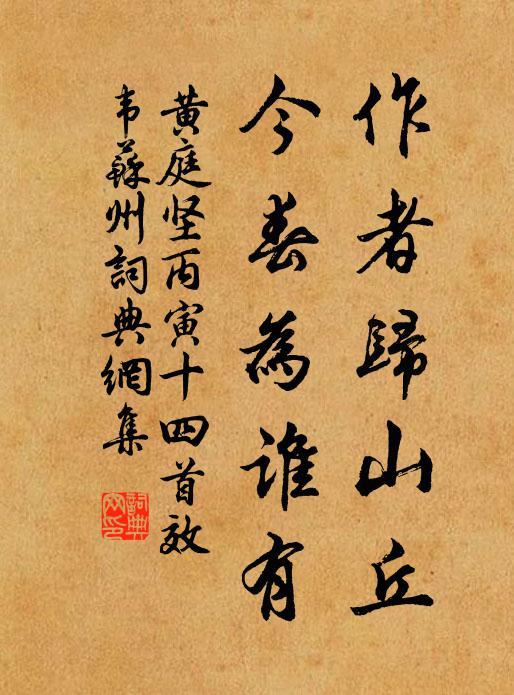 作者歸山丘
今春為誰有
黄庭坚丙寅十四首效
韦蘇州詞典網集
詞典
文印